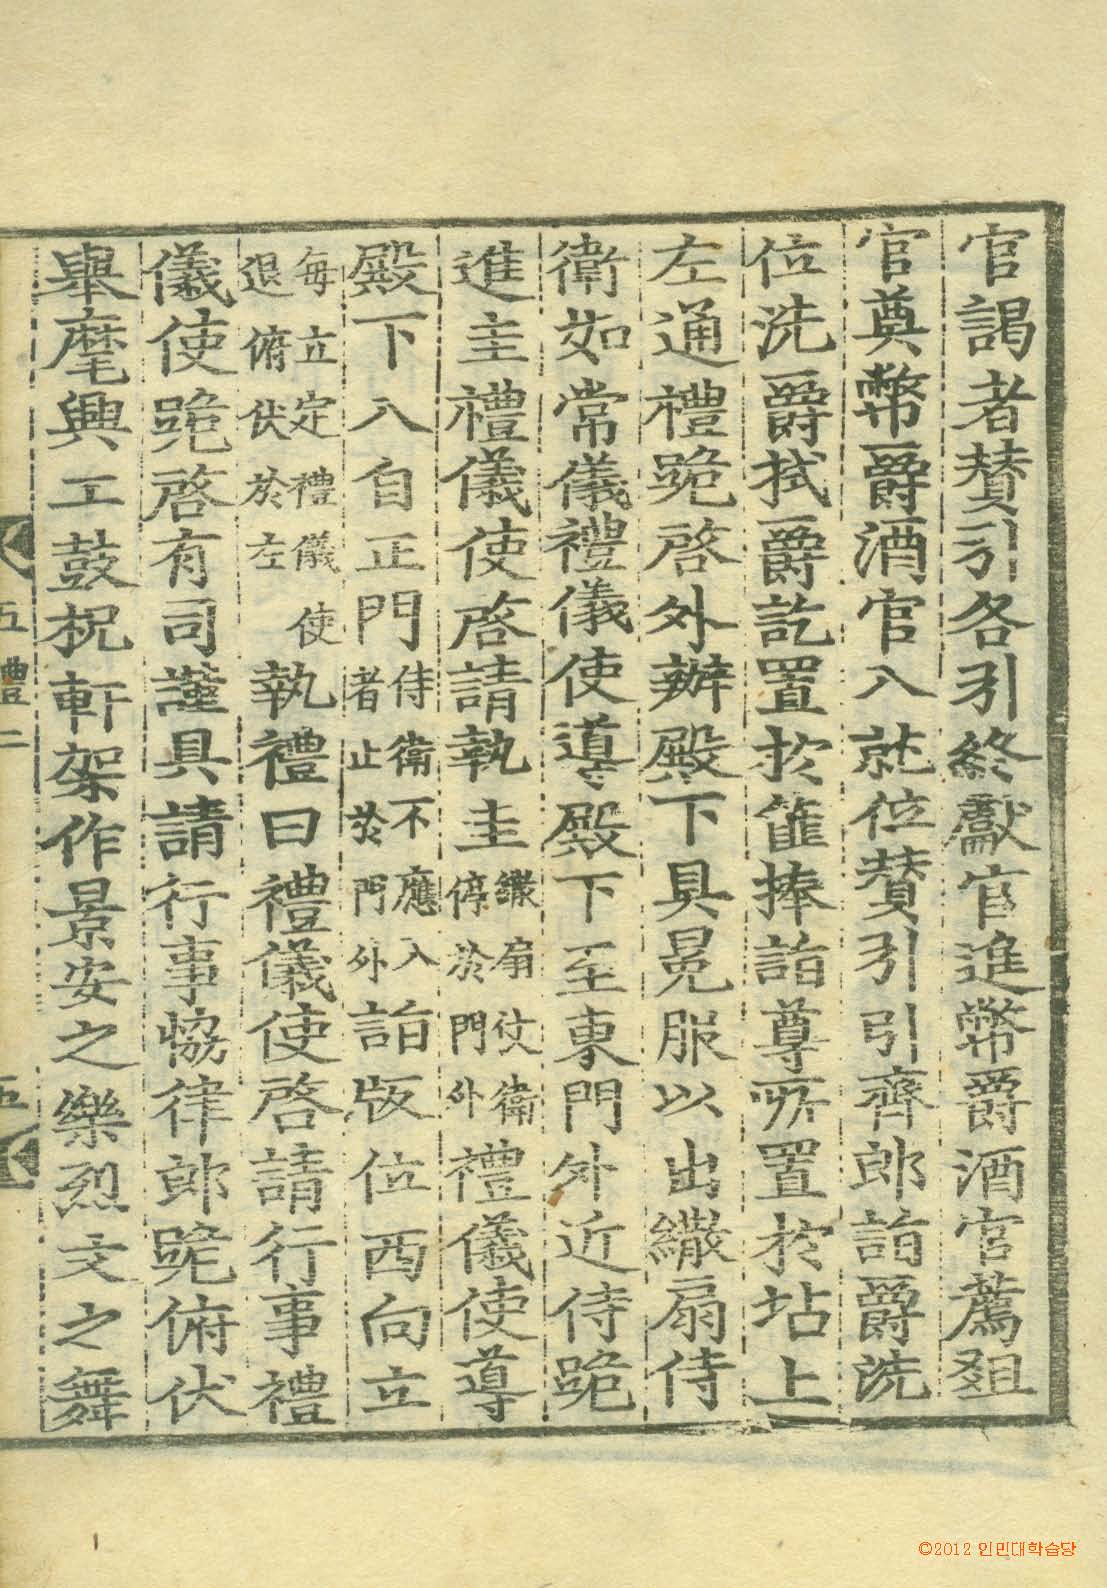 官謁者贊引各引終獻官進幣爵酒官薦俎
官奠幣爵酒官入就位贊引引齊郎詣爵洗
位洗爵拭爵訖置於篚捧詣尊所置於坫上
左通禮跪啓外辦殿下具冕服以出繖扇侍
衛如常儀禮儀使導殿下至東門外近侍跪
進圭禮儀使啓請執圭繖扇仗衛停於門外禮儀使導
殿下入自正門侍衛不應入者止於門外詣版位西向立
每立定禮儀使退俯伏於左執禮曰禮儀使啓請行事禮
儀使跪啓有司謹具請行事恊律郎跪俯伏
舉麾興工鼓柷軒架作景安之樂烈文之舞
五禮二
五
©2012 인민대학습당